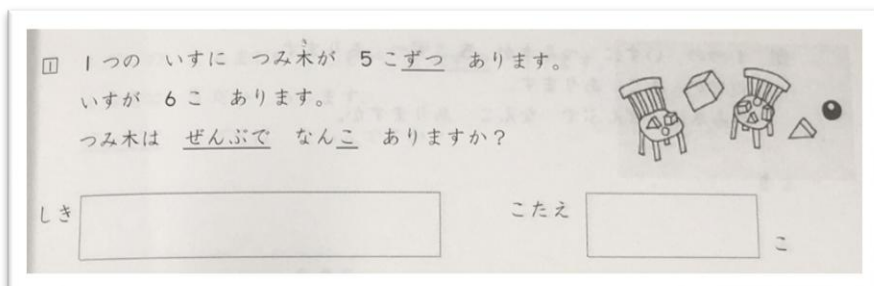 1 1つの いすに つみ木が 5こずつ あります。
き
いすが 6こ あります。
つみ木は ぜんぶで なんこ ありますか？
しき
こたえ
こ